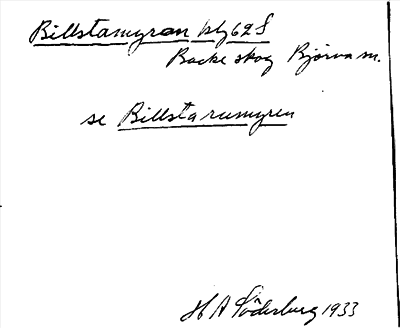 Billstamyran blg 62 S
Backe skog Björna sn.
se Billstarumyren
H A Söderburg 1933